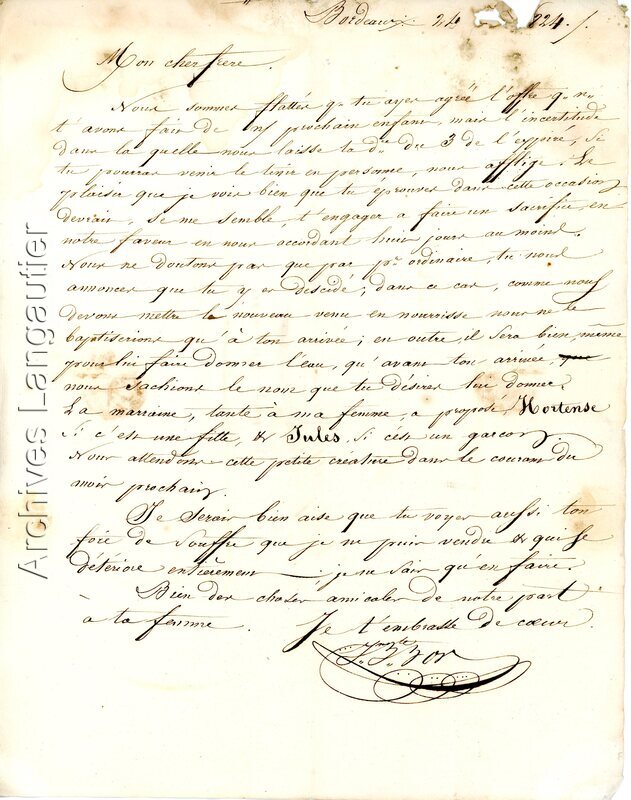 Bordeaux 24 824
Mon cher frere.
Nous sommes flattés qe tu ayes agréé l'offre q. n.
t'avons fait de nf prochain enfant, mais l'incertitude
dans la quelle nous laisse ta du 3 de l'expiré, si
tu pourras venir le tenir en personne, nous afflige. Le
plaisir que je vois bien que tu eprouves dans cette occasion
devrait, se me semble, t'engager a faire un sacrifice en
notre faveur en nous accordant huit jours au moins.
Nous ne doutons pas que par pr ordinaire, tu nous
annonces que tu y es descidé; dans ce cas, comme nous
devons mettre le nouveau venu en nourrisse nous ne le
baptiserions qu'à ton arrivée; en outre, il sera bien, même
pour lui faire donner l'eau, qu'avant ton arrivée,
nous sachions le nom que tu desires lui donner.
La marraine, tante à ma femme, a proposé Hortense
si c'est une fille, & Jules, si c'est un garçon.
Nous attendons cette petite créature dans le courant du
mois prochain.
Je serais bien aise que tu voyes aussi ton
foie de souffre que je ne puis vendre & qui se
détériore entièrement; je ne sais qu'en faire.
Bien des choses amicales de notre part
à ta femme. Je t'embrasse de cœur.
Archives Langautier